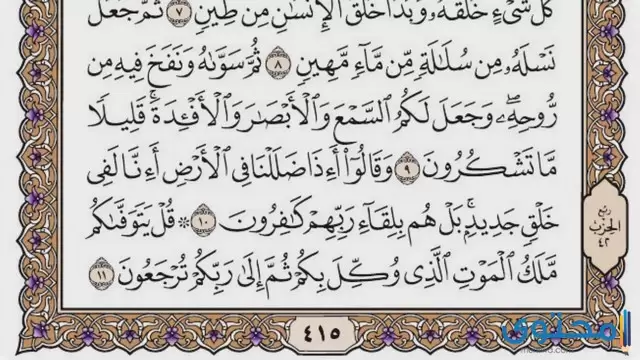 كُلَّ شَىْءٍ خَلَقَهُۥ وَبَدَأَ خَلْقَ الْإِنسَٰنِ مِن طِينٍ ٧ ثُمَّ جَعَلَ
نَسْلَهُۥ مِن سُلَٰلَةٍ مِّن مَّآءٍ مَّهِينٍ ٨ ثُمَّ سَوَّىٰهُ وَنَفَخَ فِيهِ مِن
رُّوحِهِۦ وَجَعَلَ لَكُمُ السَّمْعَ وَالْأَبْصَٰرَ وَالْأَفْـِٔدَةَ ۚ قَلِيلًا
مَّا تَشْكُرُونَ ٩ وَقَالُوٓا۟ أَءِذَا ضَلَلْنَا فِى الْأَرْضِ أَءِنَّا لَفِى
خَلْقٍ جَدِيدٍۭ ۚ بَلْ هُم بِلِقَآءِ رَبِّهِمْ كَٰفِرُونَ ١٠ ۞ قُلْ يَتَوَفَّىٰكُم
مَّلَكُ الْمَوْتِ الَّذِى وُكِّلَ بِكُمْ ثُمَّ إِلَىٰ رَبِّكُمْ تُرْجَعُونَ ١١
ربع
الحزب
٤٢
٤١٥
المحتوى